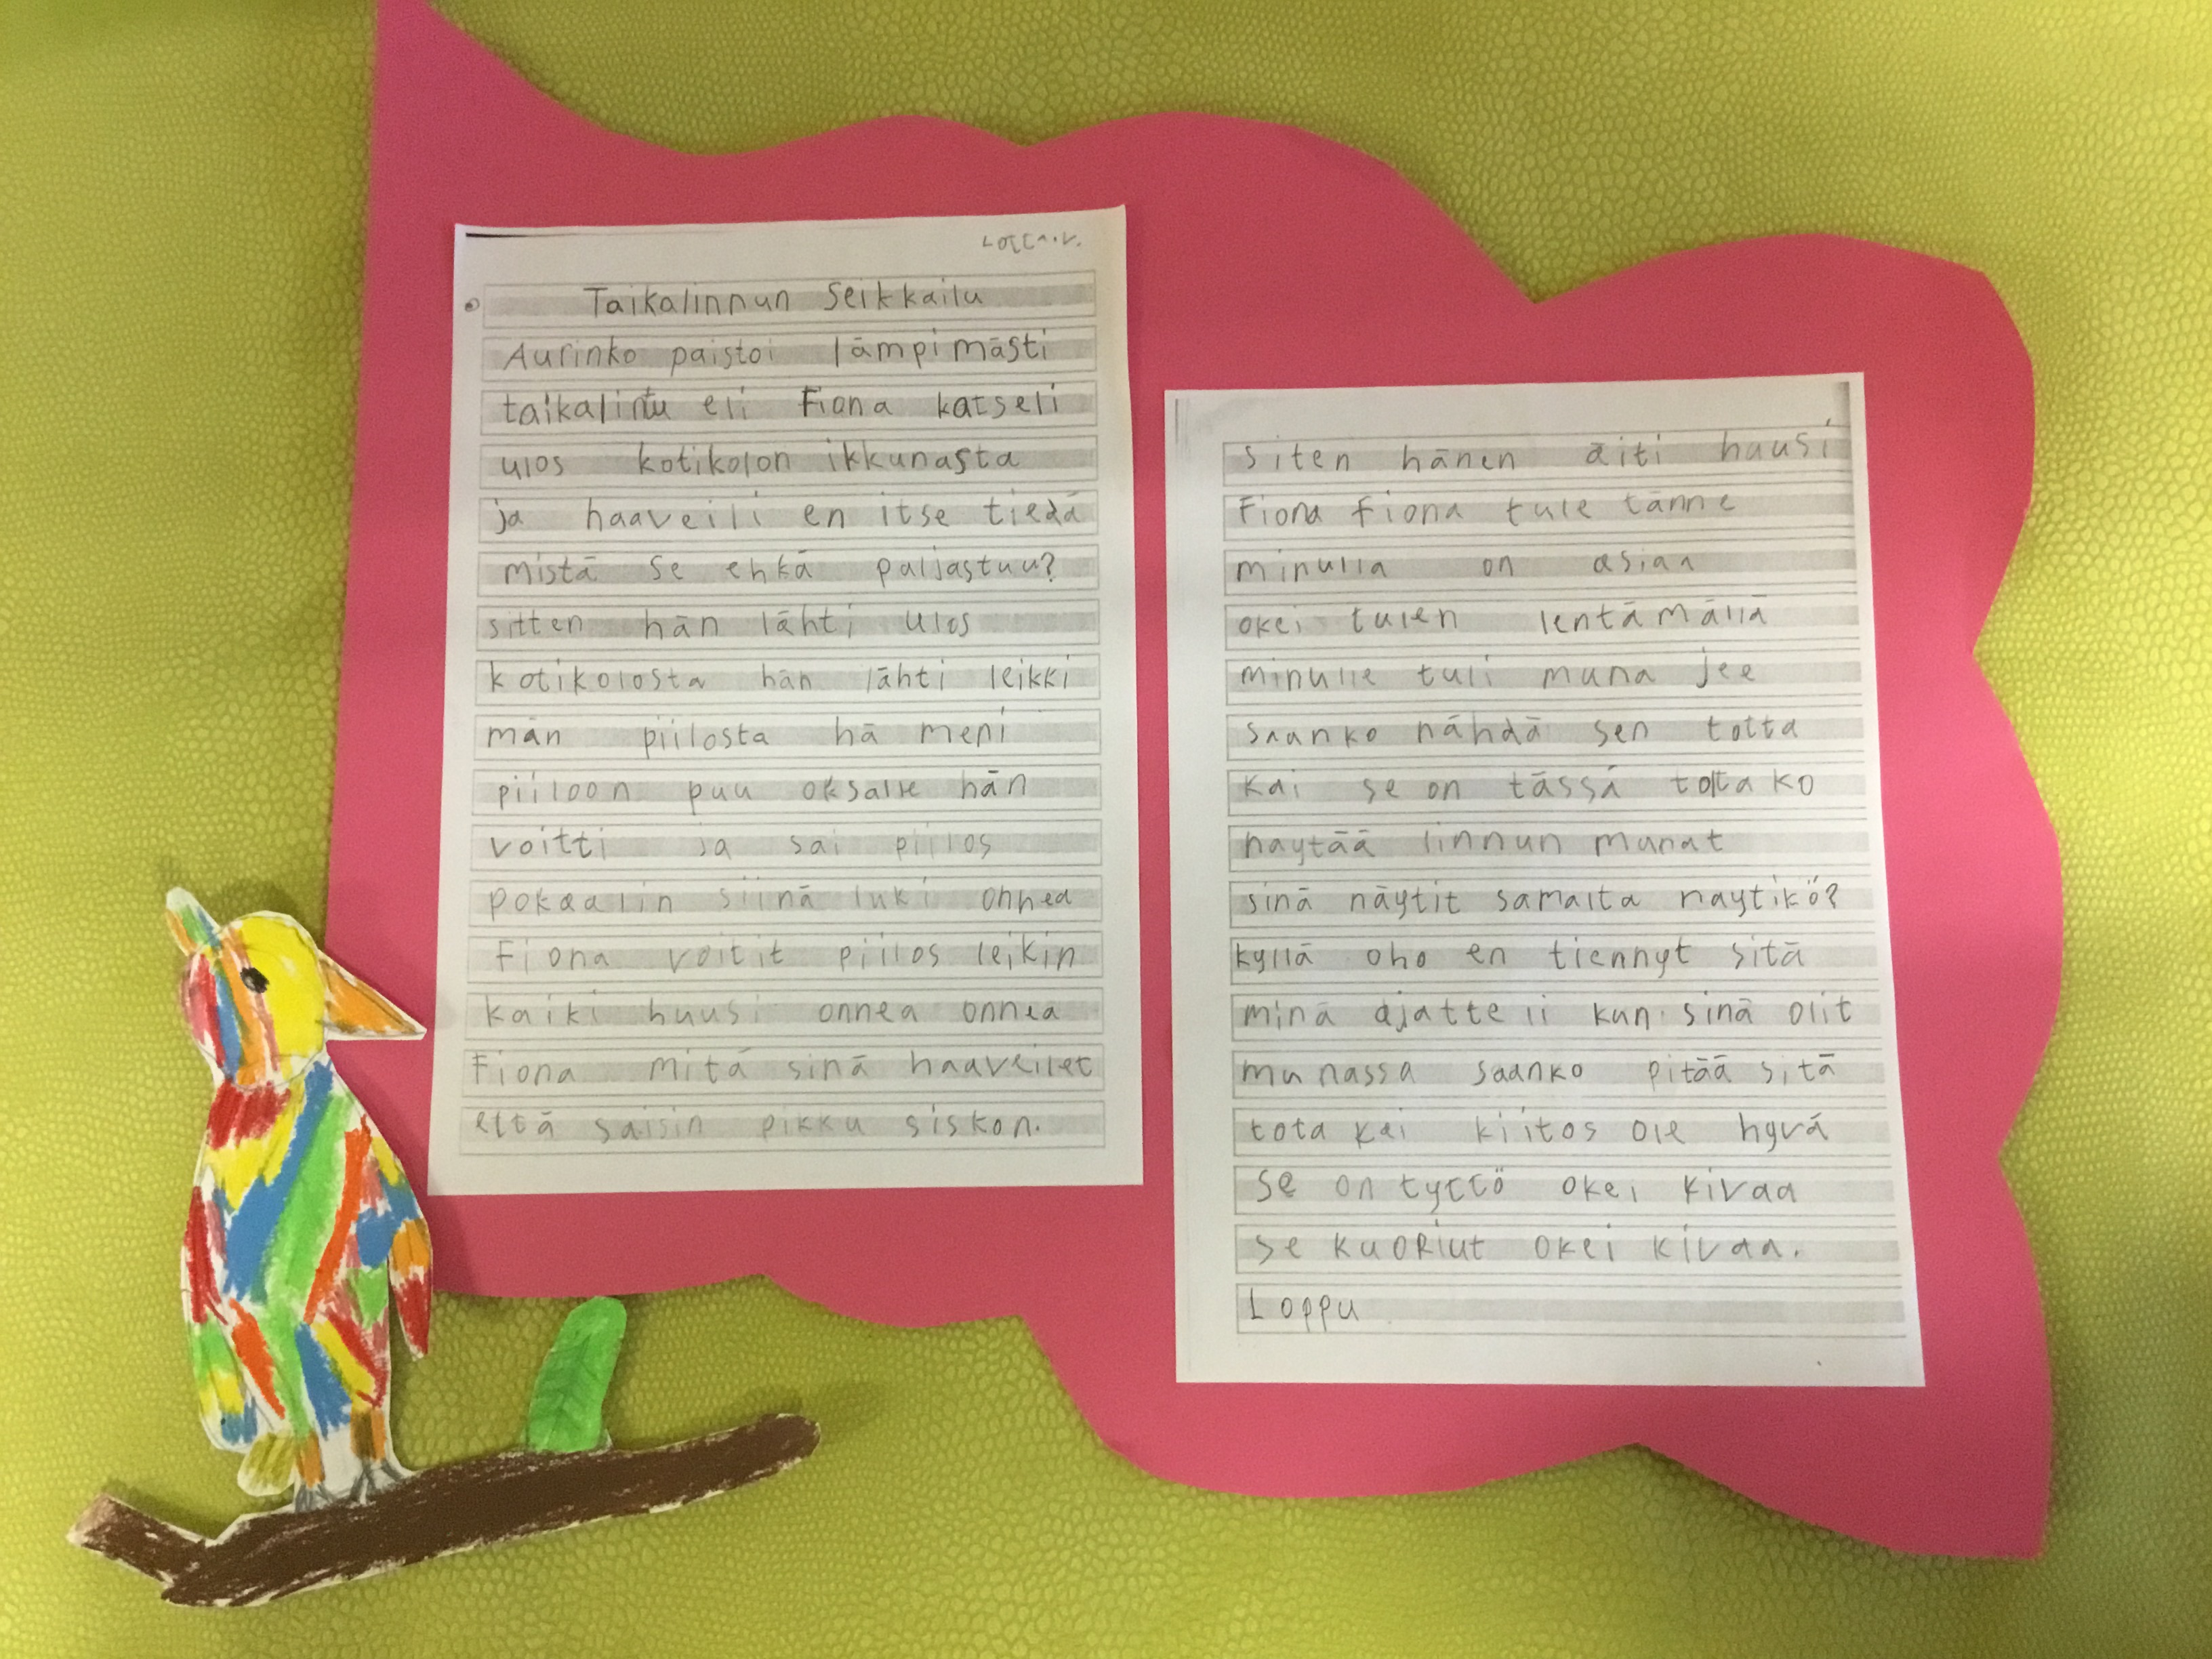 Lotta.V.
Taikalinnun Seikkailu
Aurinko paistoi lämpimästi
taikalintu eli Fiona katseli
ulos kotikolon ikkunasta
ja haaveili en itse tiedä
mistä se ehkä paljastuu?
sitten hän lähti ulos
kotikolosta hän lähti leikki
män piilosta hä meni
piiloon puu oksalle hän
voitti ja sai piilos
pokaalin siinä luki onnea
Fiona voitit piilos leikin
kaiki huusi onnea onnea
Fiona mitä sinä haaveilet
että saisin pikku siskon.
siten hänen äiti huusi
Fiona Fiona tule tänne
minulla on asiaa
okei tulen lentämällä
minulle tuli muna jee
saanko nähdä sen totta
kai se on tässä toltako
naytää linnun munat
sinä näytit samalta naytikö?
kyllä oho en tiennyt sitä
minä ajatteli kun sinä olit
munassa saanko pitää sitä
tota kai kiitos ole hyvä
se on tyttö okei kivaa
se kuoriut okei kivaa.
Loppu